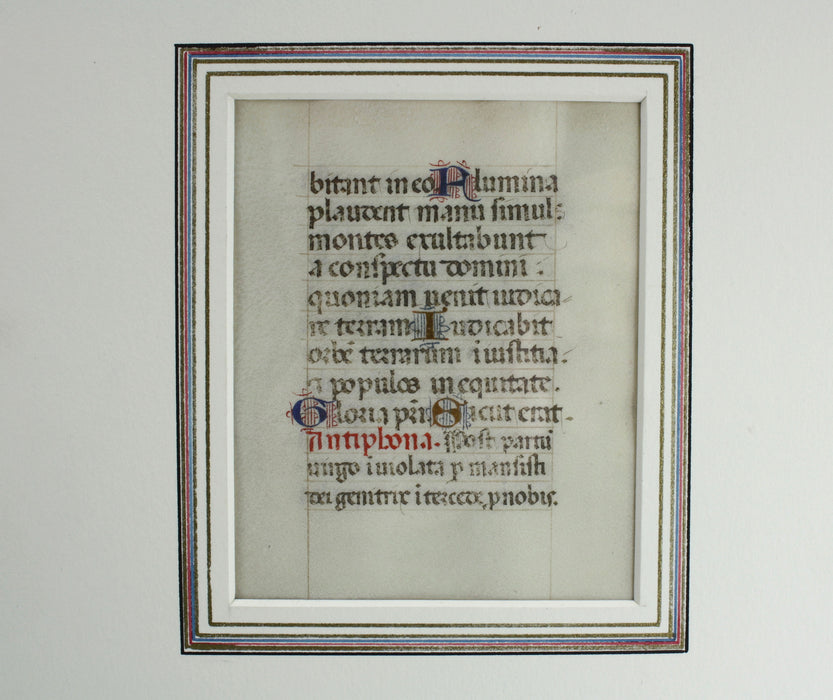 bitant in eo Flumina
plaudent manu simul:
montes exultabunt
a conspectu domini :
quoniam venit iudica=
re terram Iudicabit
orbē terrarum i iusticia:
a populos in equitate.
Gloria pr̄i Sicut erat.
Antiphona. Post partū
uirgo iuiolata p mansisti
dei genitrix ītercede, p nobis.